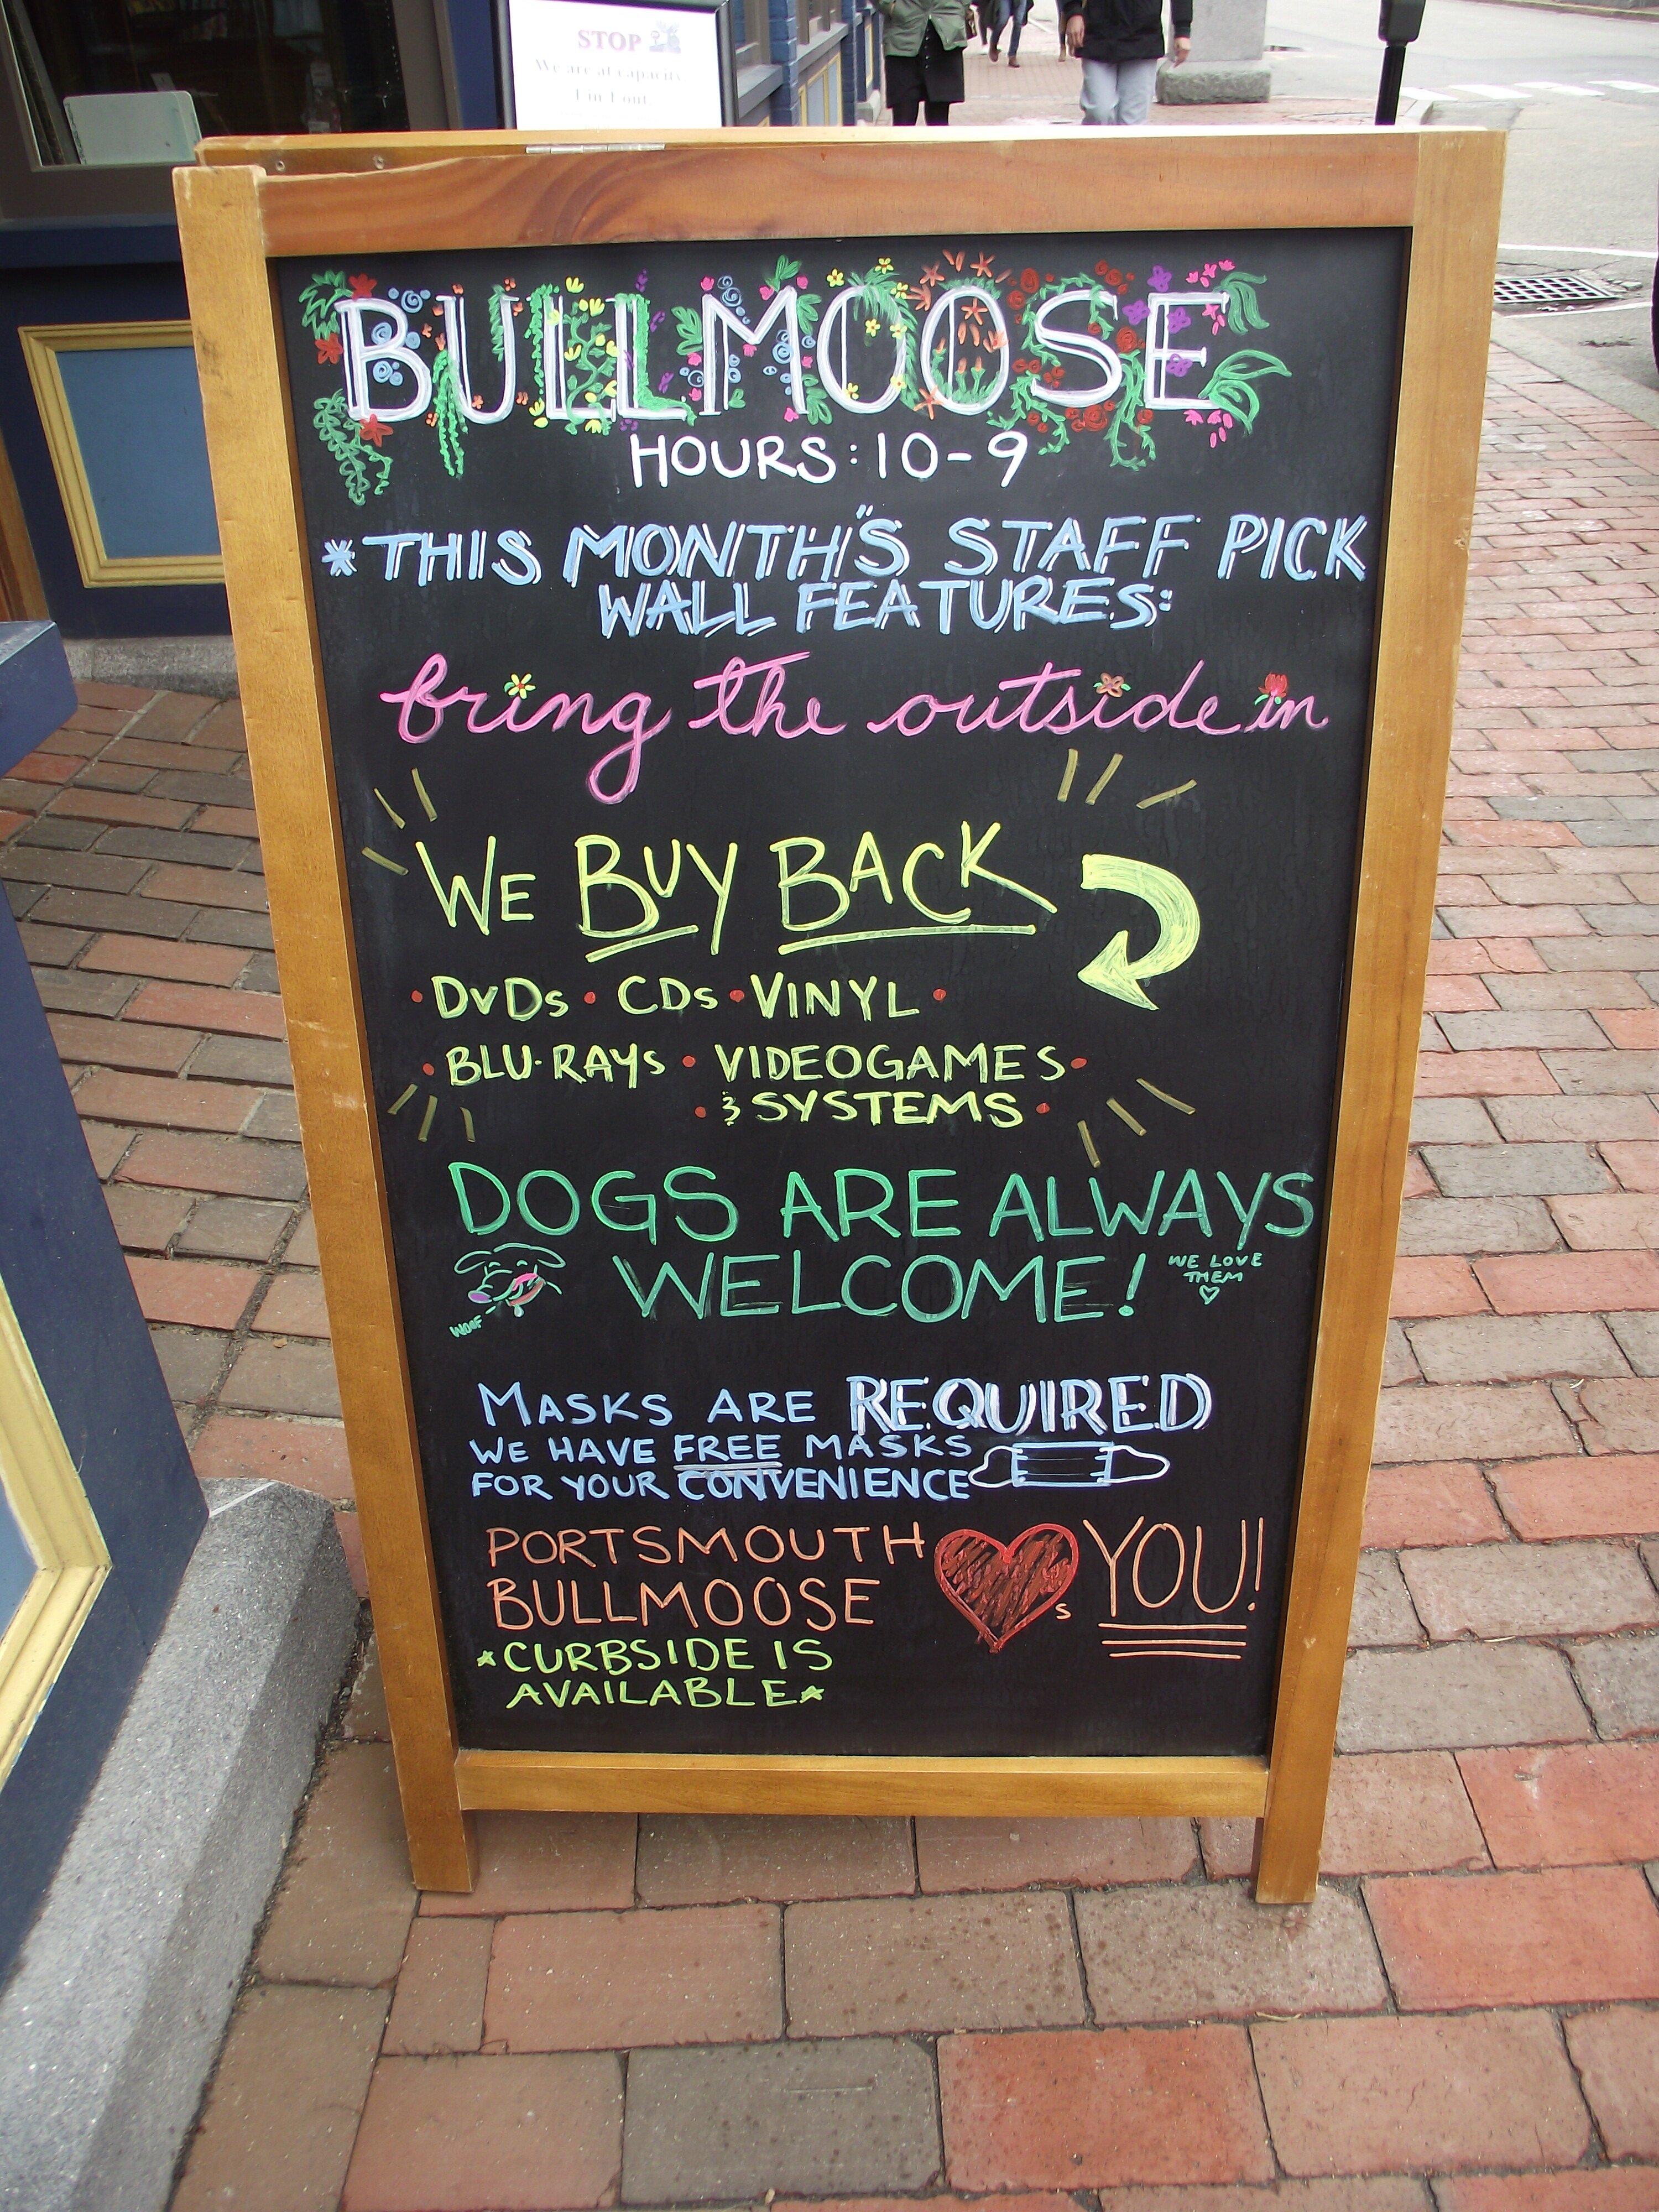 STOP
We are at capacity
1 in 1 out
BULLMOOSE
HOURS: 10-9
*THIS MONTH'S STAFF PICK
WALL FEATURES:
bring the outside in
WE BUY BACK
• DVDs • CDs • VINYL •
• BLU-RAYs • VIDEOGAMES •
• & SYSTEMS •
DOGS ARE ALWAYS
WELCOME!
WE LOVE
THEM
WOOF
MASKS ARE REQUIRED
WE HAVE FREE MASKS
FOR YOUR CONVENIENCE
PORTSMOUTH
BULLMOOSE ♥s YOU!
*CURBSIDE IS
AVAILABLE*